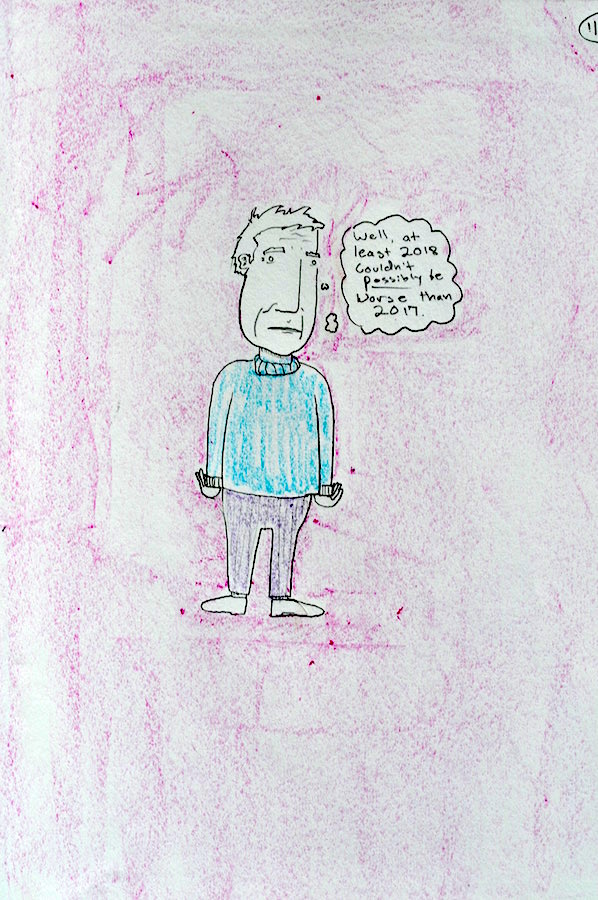 11
Well, at
least 2018
couldn't
possibly be
worse than
2017.